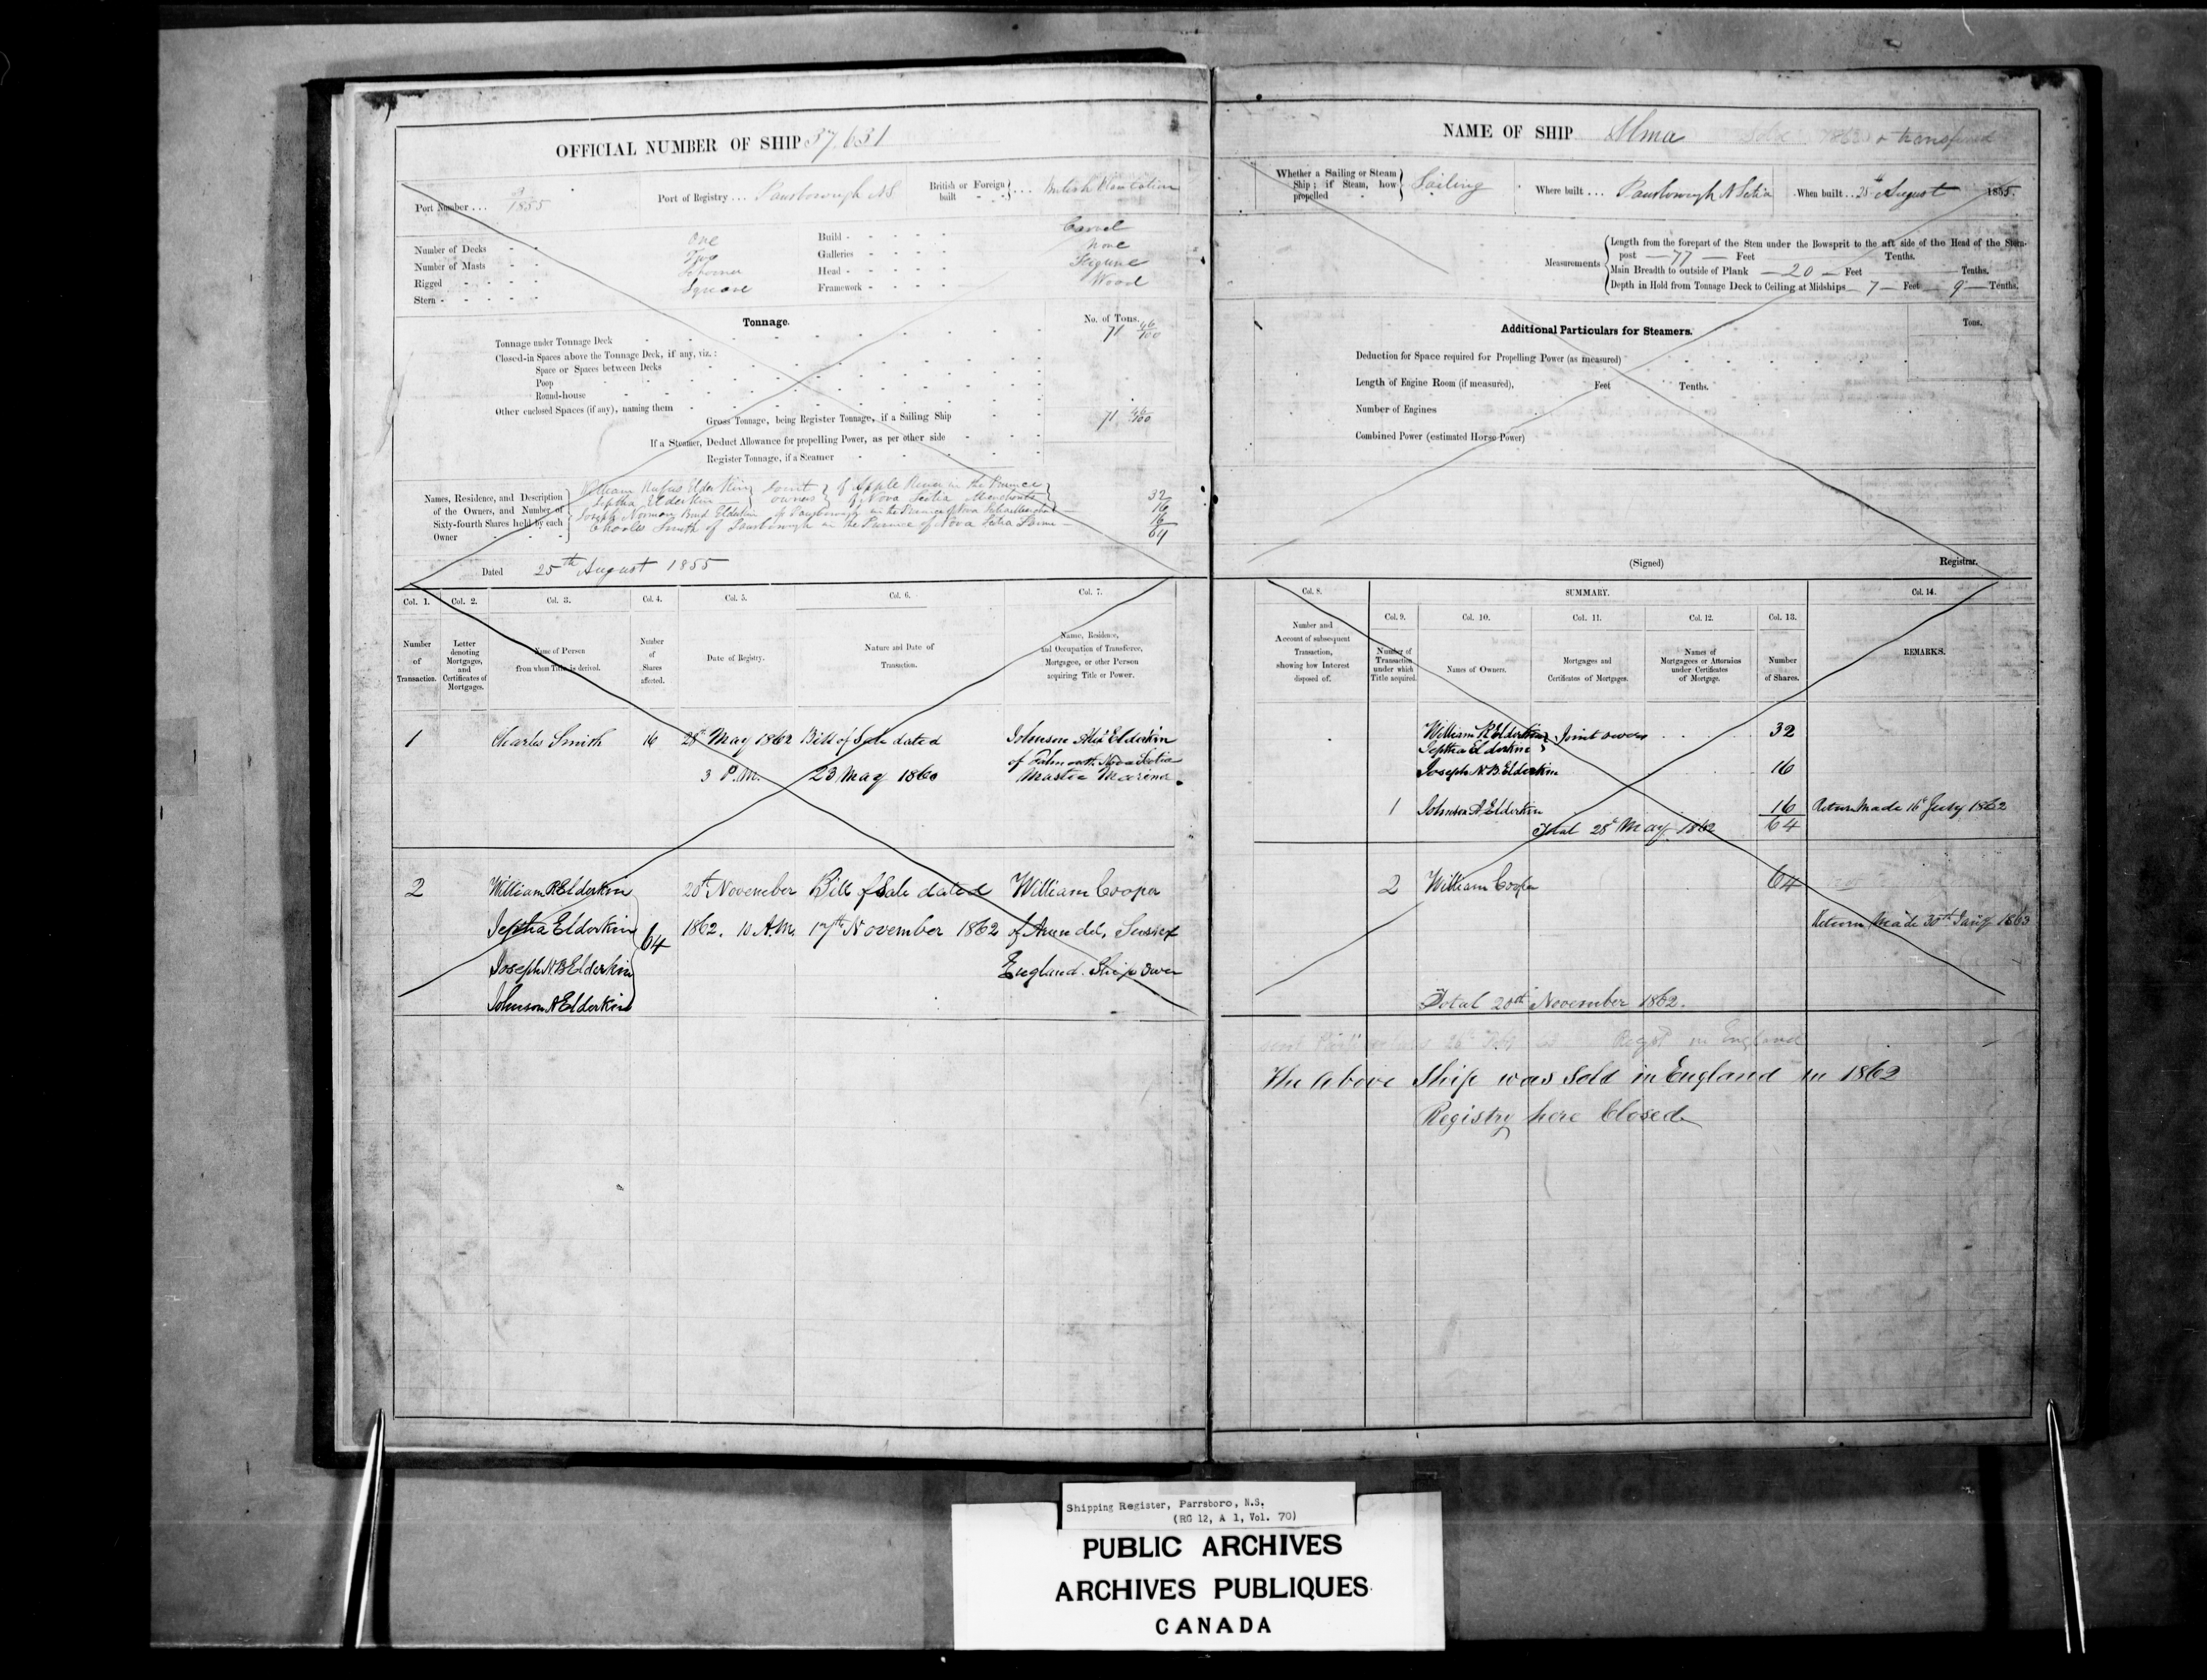 OFFICIAL NUMBER OF SHIP 37,631
Port Number ... 9/1855
Port of Registry ... Parrsborough N.S
British or Foreign built } ... British Plantation
Number of Decks - - One
Number of Masts - - Two
Rigged - - - Schooner
Stern - - - - Square
Build - - - - - Carvel
Galleries - - - - None
Head - - - - - Figure
Framework - - - - Wood
Tonnage.
No. of Tons.
Tonnage under Tonnage Deck 71 46/100
Closed-in Spaces above the Tonnage Deck, if any, viz.:
Space or Spaces between Decks
Poop
Round-house
Other enclosed Spaces (if any), naming them
Gross Tonnage, being Register Tonnage, if a Sailing Ship 71 46/100
If a Steamer, Deduct Allowance for propelling Power, as per other side
Register Tonnage, if a Steamer
Names, Residence, and Description of the Owners, and Number of Sixty-fourth Shares held by each Owner
William Rufus Elderkin } Joint } of Apple River in the Province } 32
Jeptha Elderkin } owners } of Nova Scotia Merchants }
Joseph Norman Bond Elderkin of Parrsborough in the Province of Nova Scotia Merchant — 16
Charles Smith of Parrsborough in the Province of Nova Scotia — 16
64
Dated 25th August 1855
Col. 1. Col. 2. Col. 3. Col. 4. Col. 5. Col. 6. Col. 7.
Number of Transaction.
Letter denoting Mortgages, and Certificates of Mortgages.
Name of Person from whom Title is derived.
Number of Shares affected.
Date of Registry.
Nature and Date of Transaction.
Name, Residence, and Occupation of Transferee, Mortgagee, or other Person acquiring Title or Power.
1 Charles Smith 16 28th May 1862 Bill of Sale dated Johnson Alex Elderkin
of Falmouth Nova Scotia
3 P.M. 23 May 1860 Master Mariner.
2 William R Elderkin 20th November Bill of Sale dated William Cooper
Jeptha Elderkin 64 1862. 10 A.M. 17th November 1862 of Arundel, Sussex
Joseph N. B Elderkin England. Ship Owner
Johnson A Elderkin
NAME OF SHIP Alma Sold 1863 & transferred
Whether a Sailing or Steam Ship; if Steam, how propelled } Sailing
Where built ... Parrsborough N Scotia
When built .. 25th August 1855.
Measurements
Length from the forepart of the Stem under the Bowsprit to the aft side of the Head of the Stern-
post — 77 — Feet Tenths.
Main Breadth to outside of Plank — 20 — Feet — Tenths.
Depth in Hold from Tonnage Deck to Ceiling at Midships — 7 — Feet — 9 — Tenths.
Additional Particulars for Steamers.
Tons.
Deduction for Space required for Propelling Power (as measured)
Length of Engine Room (if measured), Feet Tenths.
Number of Engines
Combined Power (estimated Horse Power)
(Signed) Registrar.
Col. 8. SUMMARY. Col. 14.
Col. 9. Col. 10. Col. 11. Col. 12. Col. 13.
Number and Account of subsequent Transaction, showing how Interest disposed of.
Number of Transaction under which Title acquired.
Names of Owners.
Mortgages and Certificates of Mortgages.
Names of Mortgagees or Attornies under Certificates of Mortgage.
Number of Shares.
REMARKS.
William R Elderkin } Joint owners 32
Jeptha Elderkin }
Joseph N. B. Elderkin 16
1 Johnson A Elderkin 16 Return Made 16th July 1862
Total 28th May 1862 64
2 William Cooper 64
Return Made 30th Jany 1863
Total 20th November 1862.
in England
The Above Ship was Sold in England in 1862
Registry here Closed
Shipping Register, Parrsboro, N.S.
(RG 12, A 1, Vol. 70)
PUBLIC ARCHIVES
ARCHIVES PUBLIQUES
CANADA